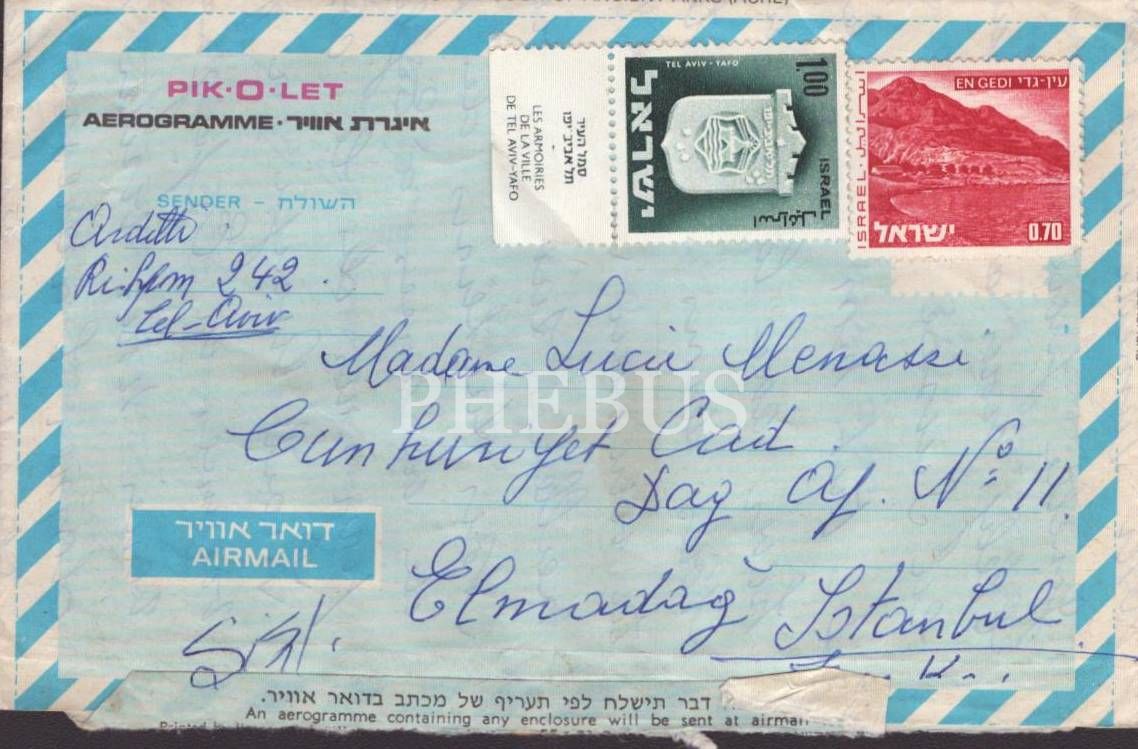 PIK·O·LET
AEROGRAMME · איגרת אוויר
SENDER - השולח
Arditti
242
Tel-Aviv
סמל העיר
תל אביב-יפו
LES ARMOIRIES
DE LA VILLE
DE TEL AVIV-YAFO
TEL AVIV - YAFO
1.00
ישראל
ISRAEL
اسرائيل
EN GEDI עין-גדי
ISRAEL اسرائيل
ישראל 0.70
Madame Lucie Menassi
Cumhuriyet Cad.
Dag Ap. No: 11
Elmadağ Istanbul
PHEBUS
דואר אוויר
AIRMAIL
Şişli.
דבר תישלח לפי תעריף של מכתב בדואר אוויר.
An aerogramme containing any enclosure will be sent at airmail